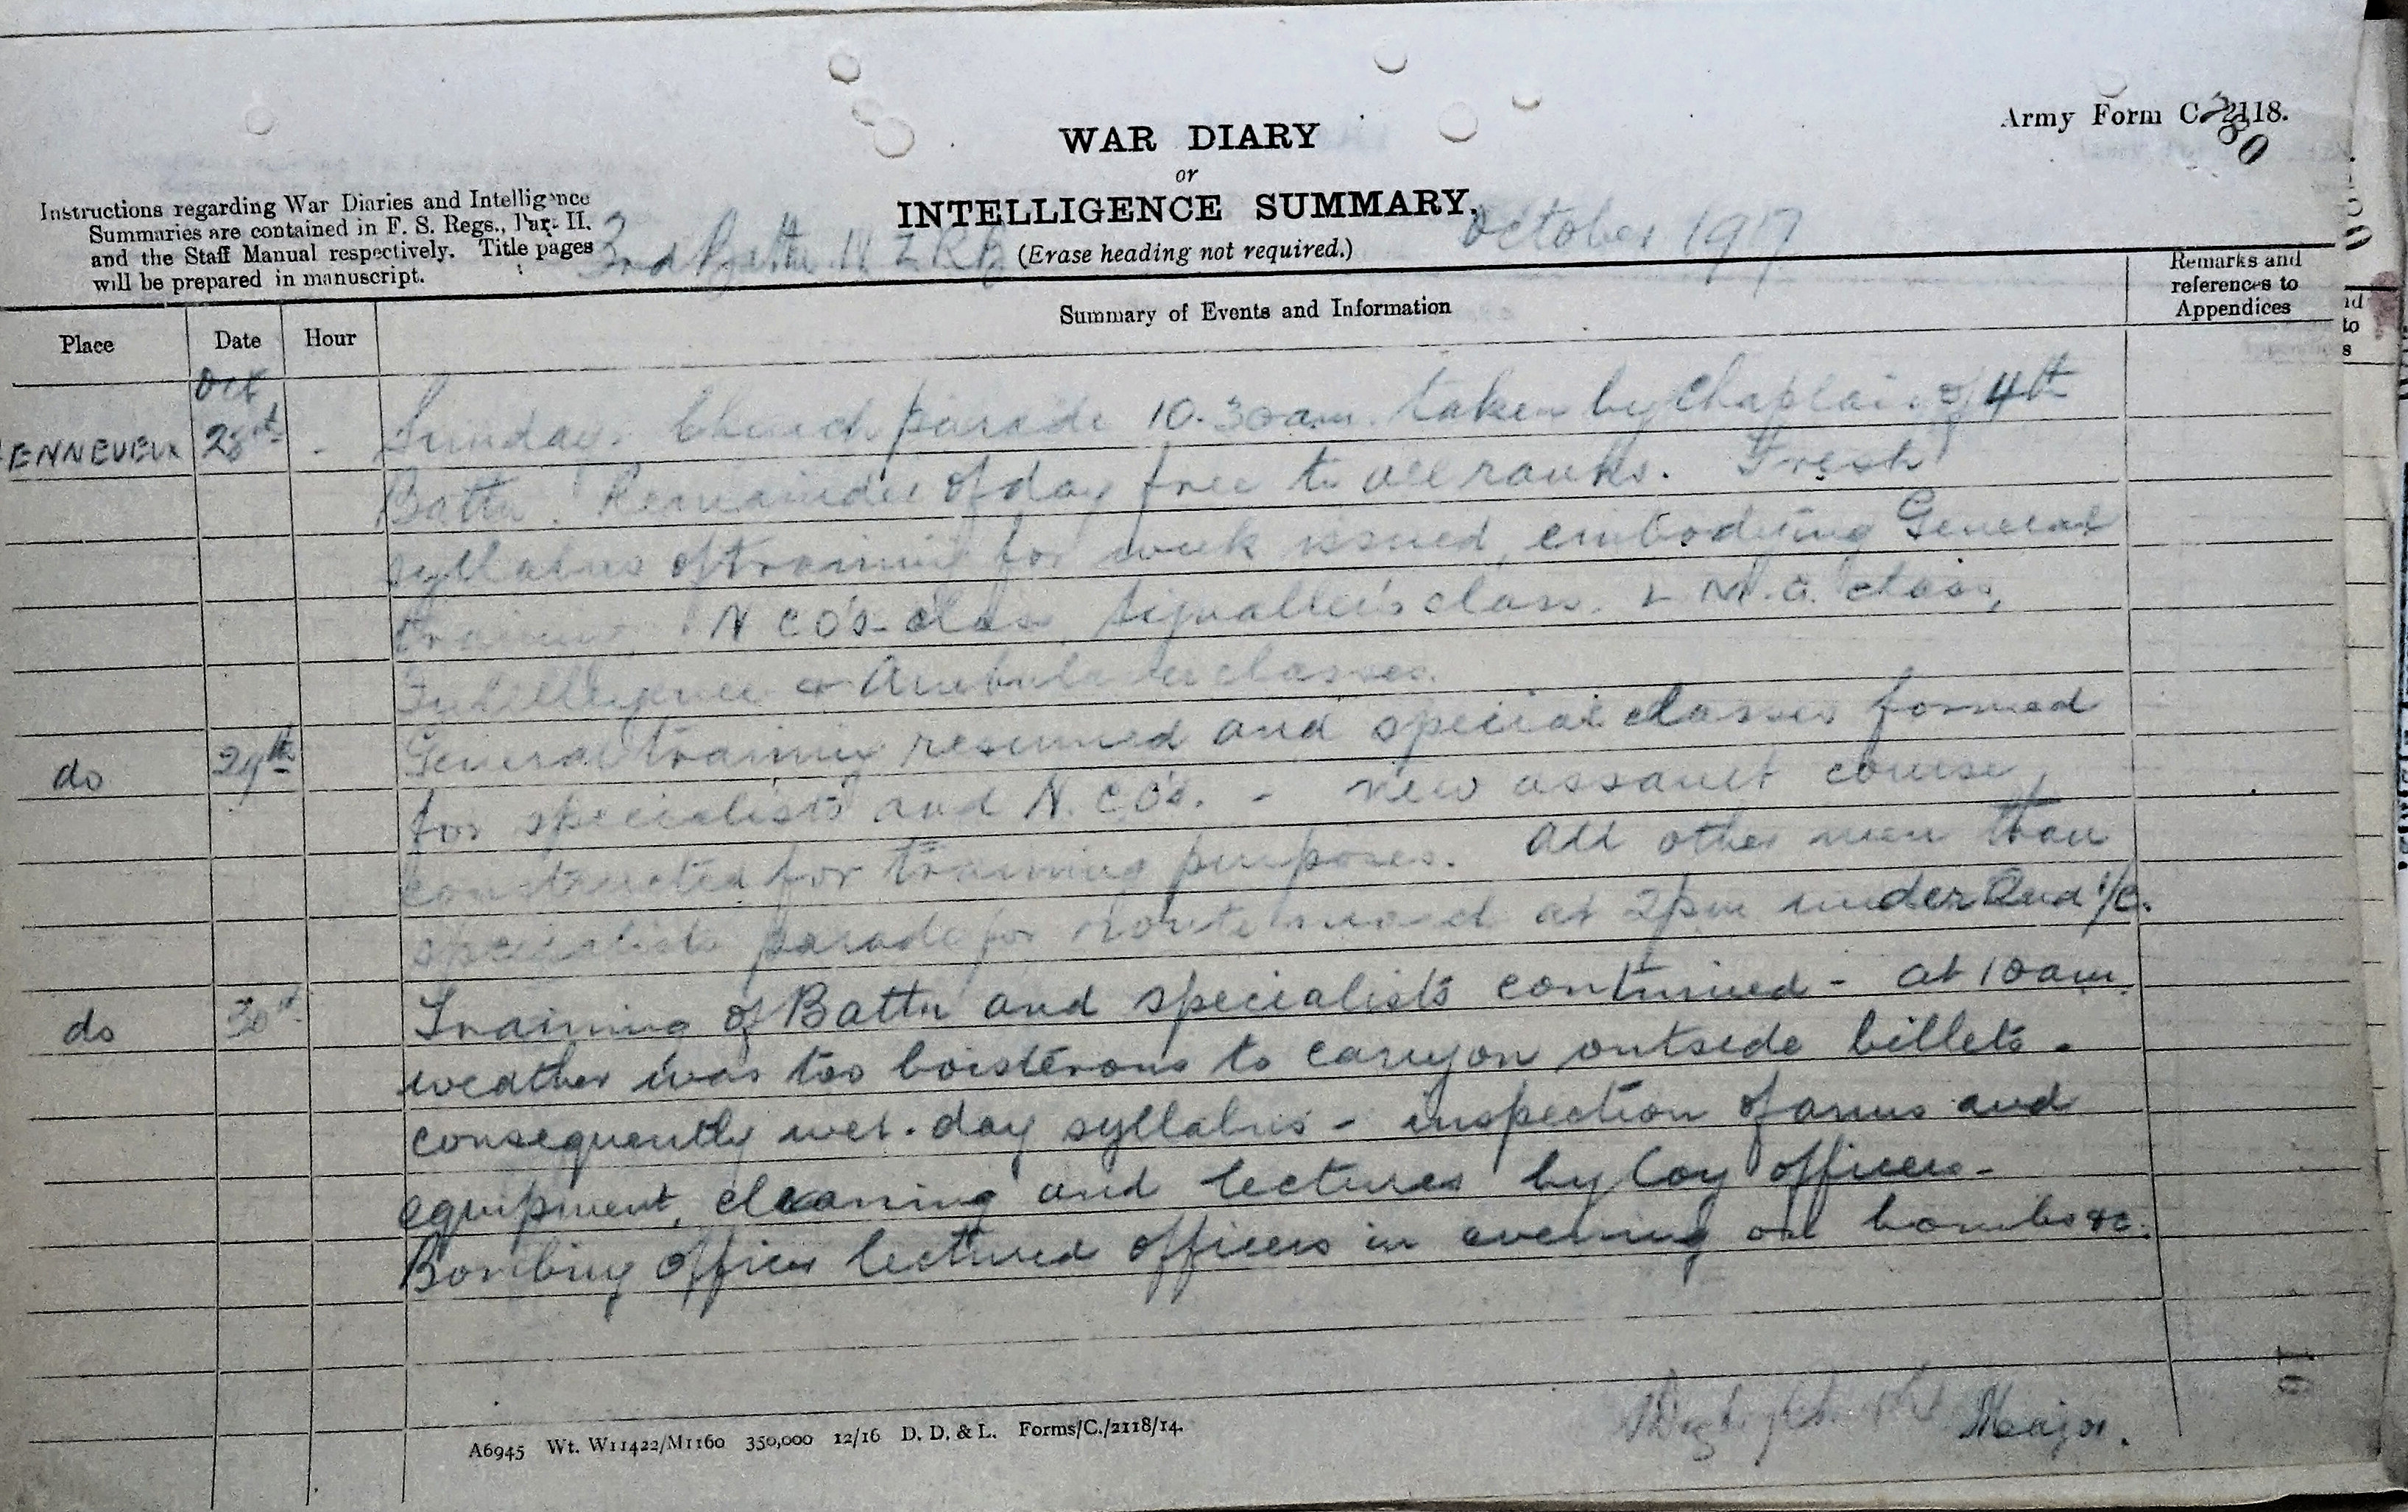 Army Form C. 2118.
280
WAR DIARY
or
INTELLIGENCE SUMMARY.
(Erase heading not required.)
Instructions regarding War Diaries and Intelligence
Summaries are contained in F. S. Regs., Part II.
and the Staff Manual respectively. Title pages
will be prepared in manuscript.
3rd Battn N Z R B October 1917
Place Date Hour Summary of Events and Information Remarks and
references to
Appendices
Oct
ENNEVEUX 28th - Sunday. Church parade 10.30am. taken by Chaplain of 4th
Battn. Remainder of day free to all ranks. Fresh
syllabus of training for week issued, embodying General
training, N CO's class, Signaller's class. L M.G. class,
Intelligence & Ambulance classes.
do 29th General training resumed and special classes formed
for specialists and N.CO's. - new assault course,
constructed for training purposes. All other men than
specialists parade for route march at 2pm under 2nd I/C.
do 30th Training of Battn and specialists continued - at 10am.
weather was too boisterous to carry on outside billets -
consequently wet. day syllabus - inspection of arms and
equipment, cleaning and lectures by Coy officers -
Bombing officer lectured officers in evening on bombs &c.
Major.
A6945 Wt. W11422/M1160 350,000 12/16 D. D. & L. Forms/C./2118/14.